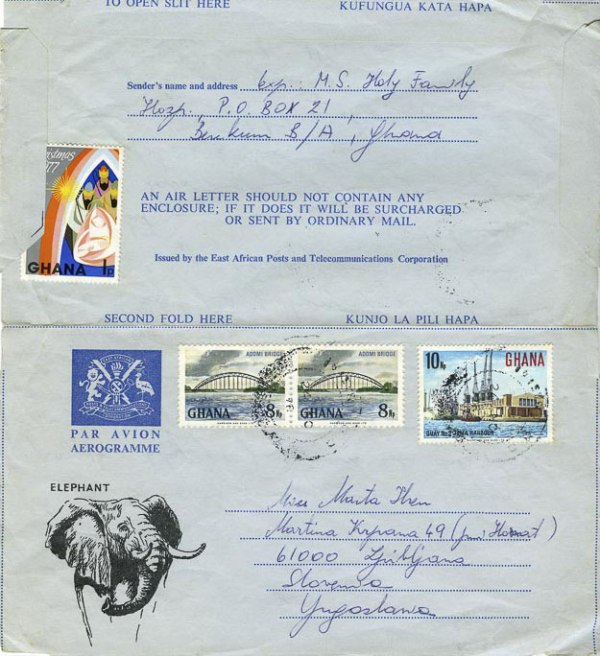 TO OPEN SLIT HERE KUFUNGUA KATA HAPA
Sender's name and address exp.: M.S. Holy Family
Hozp., P.O. BOX 21,
Berekum B/A, Ghana
Christmas
1977
GHANA 1p
AN AIR LETTER SHOULD NOT CONTAIN ANY
ENCLOSURE; IF IT DOES IT WILL BE SURCHARGED
OR SENT BY ORDINARY MAIL.
Issued by the East African Posts and Telecommunications Corporation
SECOND FOLD HERE KUNJO LA PILI HAPA
PAR AVION
AEROGRAMME
ADOMI BRIDGE
GHANA 8Np
ADOMI BRIDGE
GHANA 8Np
10Np GHANA
QUAY No. 2 TEMA HARBOUR
ELEPHANT
Miss Marta
Martina Krpana 49 (pri)
61000 Ljubljana
Slovenija
Yugoslavia